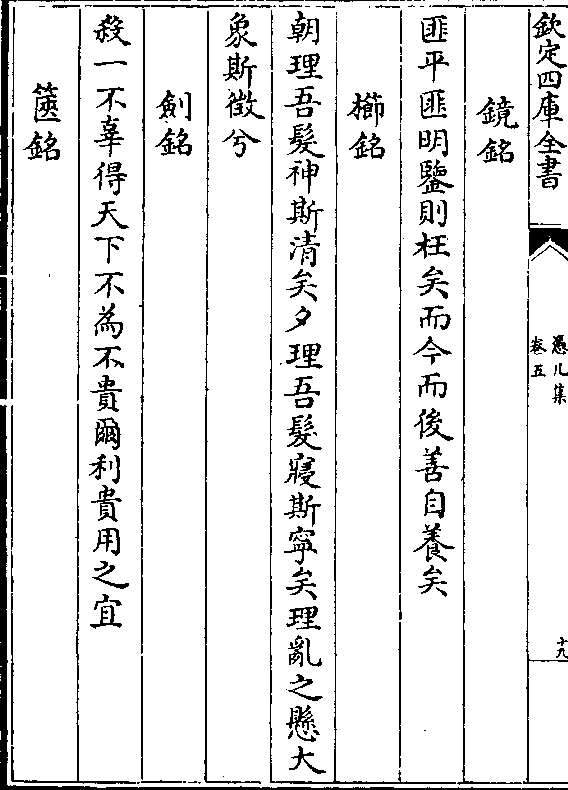 欽定四庫全書
愚几集
卷五
十九
鏡銘
匪平匪明鑒則枉矣而今而後善自養矣
櫛銘
朝理吾髮神斯清矣夕理吾髮寢斯寧矣理亂之懸大
象斯徵兮
劍銘
殺一不辜得天下不為不貴爾利貴用之宜
篋銘